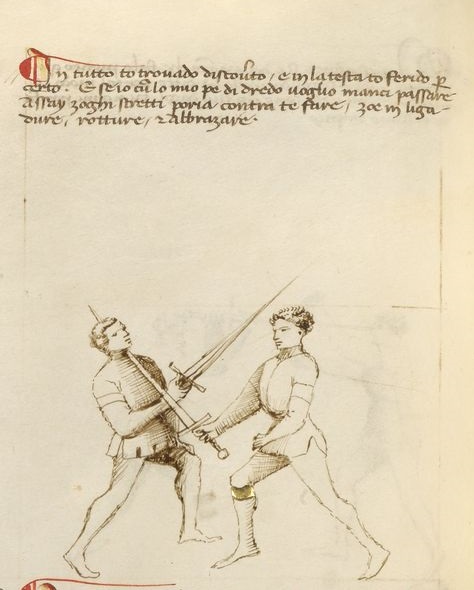 In tutto to trovado discoverto, e in la testa to ferido per
certo. E se io cum lo mio pe di dredo voglio inanci passare
Assay zoghi stretti poria contra te fare, zoe in liga
dure, rotture, e abbrazare.